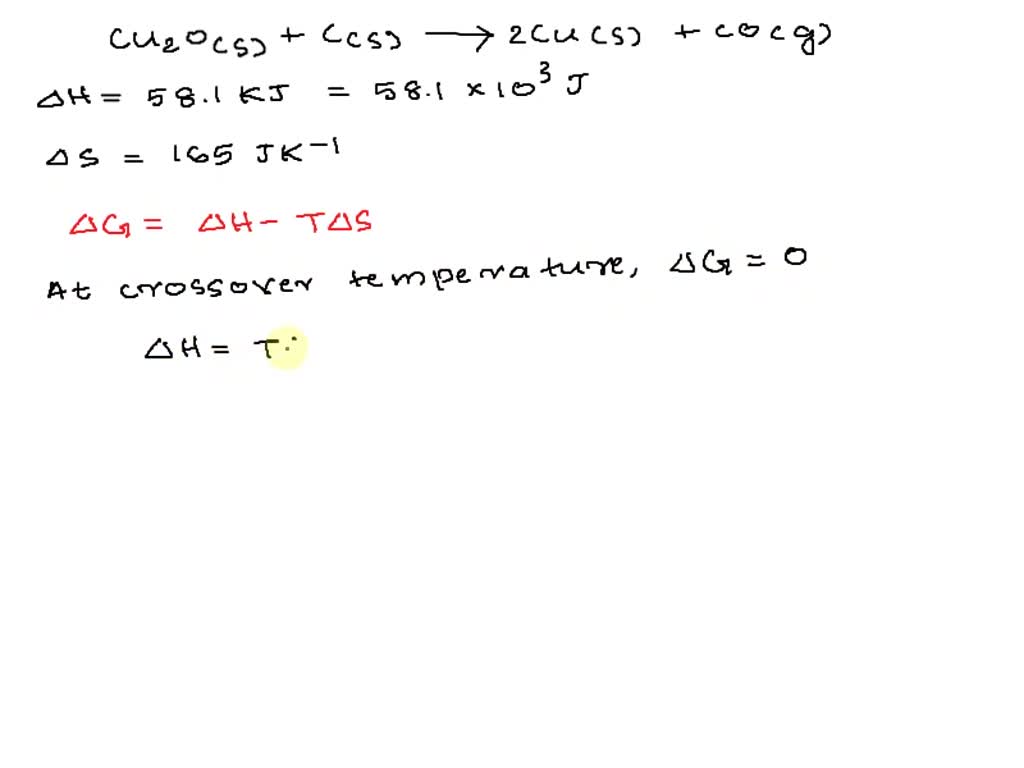 Cu2O(s) + C(s) → 2Cu(s) + CO(g)
ΔH = 58.1 KJ = 58.1 × 10³ J
ΔS = 165 JK⁻¹
ΔG = ΔH - TΔS
At crossover temperature, ΔG = 0
ΔH = T